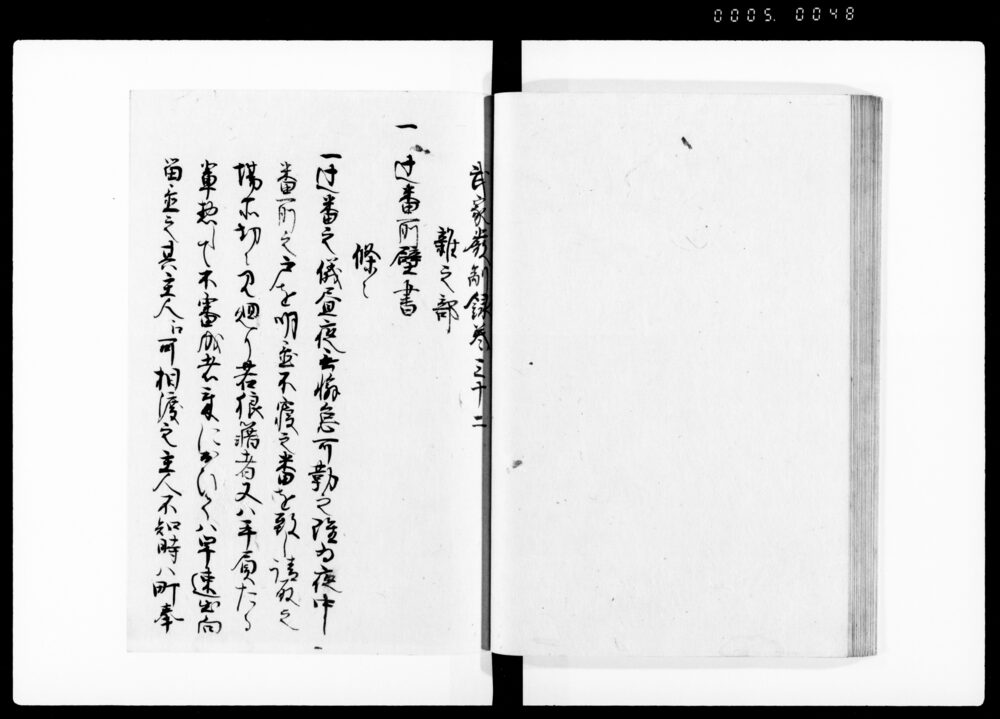 0005. 0048
武家嚴制録巻三十二
雜之部
一 辻番所壁書
條々
一辻番之儀昼夜無懈怠可勤之雖為夜中
番所之戸を明置不寝之番を致し請取之
場所切々見廻り若狼藉者又ハ手負たる
輩惣而不審成者於有之ハ早速出向
留置之其主人江可相渡之主人不知時ハ町奉